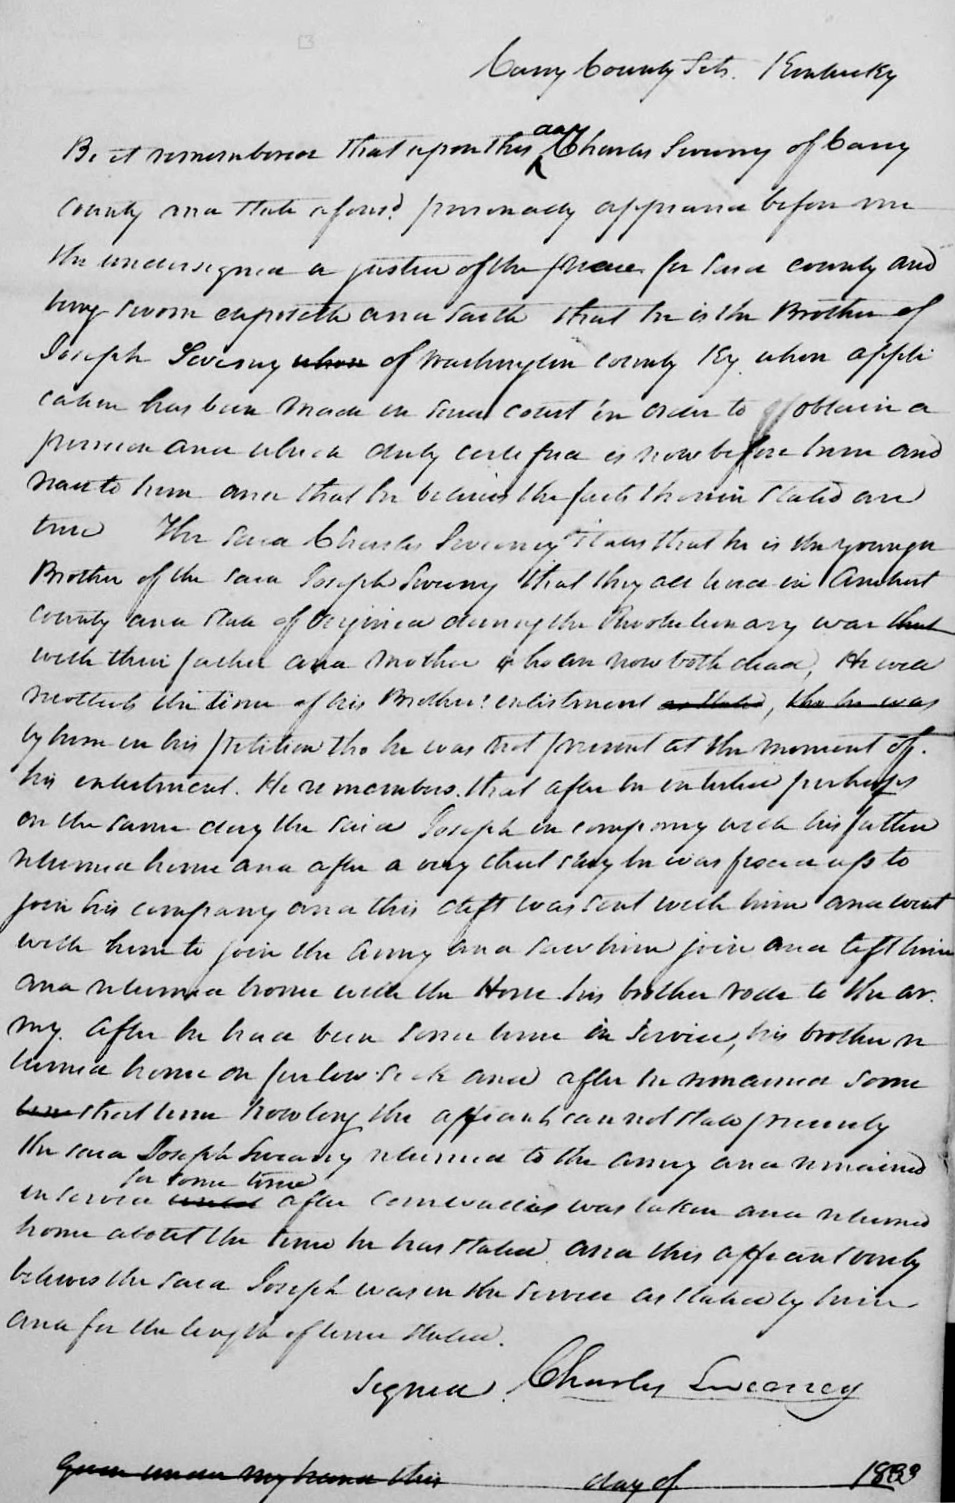 Casey County Sct. Kentucky
Be it remembered that upon this day Charles Sweeny of Casey
county and State aforesd. personally appeared before me
the undersigned a justice of the peace for said county and
being sworn deposeth and saith that he is the Brother of
Joseph Sweeny whose of Washington county Ky. whose appli
cation has been made in said court in order to obtain a
pension and which duly certified is now before him and
read to him and that he believes the facts therein stated are
true The said Charles Sweeney states that he is the younger
Brother of the said Joseph Sweeny that they all lived in Amherst
county and State of Virginia during the Revolutionary war that
with their father and mother who are now both dead, He well
recollects the time of his Brothers enlistment as stated, tho he was
by him in his petition tho he was not present at the moment of
his enlistment. He remembers that after he enlisted perhaps
on the same day the said Joseph in company with his father
returned home and after a very short stay he was fixed up to
join his company and this afft was sent with him and went
with him to join the army and saw him join and left him
and returned home with the Horse his brother rode to the ar.
my. after he had been some time in service, his brother re
turned home on furlow sick and after he remained some
time short time how long the affiant cannot state precisely
the said Joseph Sweeny returned to the army and remained
in service until for some time after Cornwallis was taken and returned
home about the time he has stated and this affiant verily
believes the said Joseph was in the service as stated by him
and for the length of time stated.
Signed Charles Sweeney
Given under my hand this day of 1833